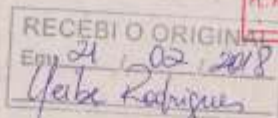 RECEBI O ORIGINAL
Em 21 / 02 / 2018
Rodrigues